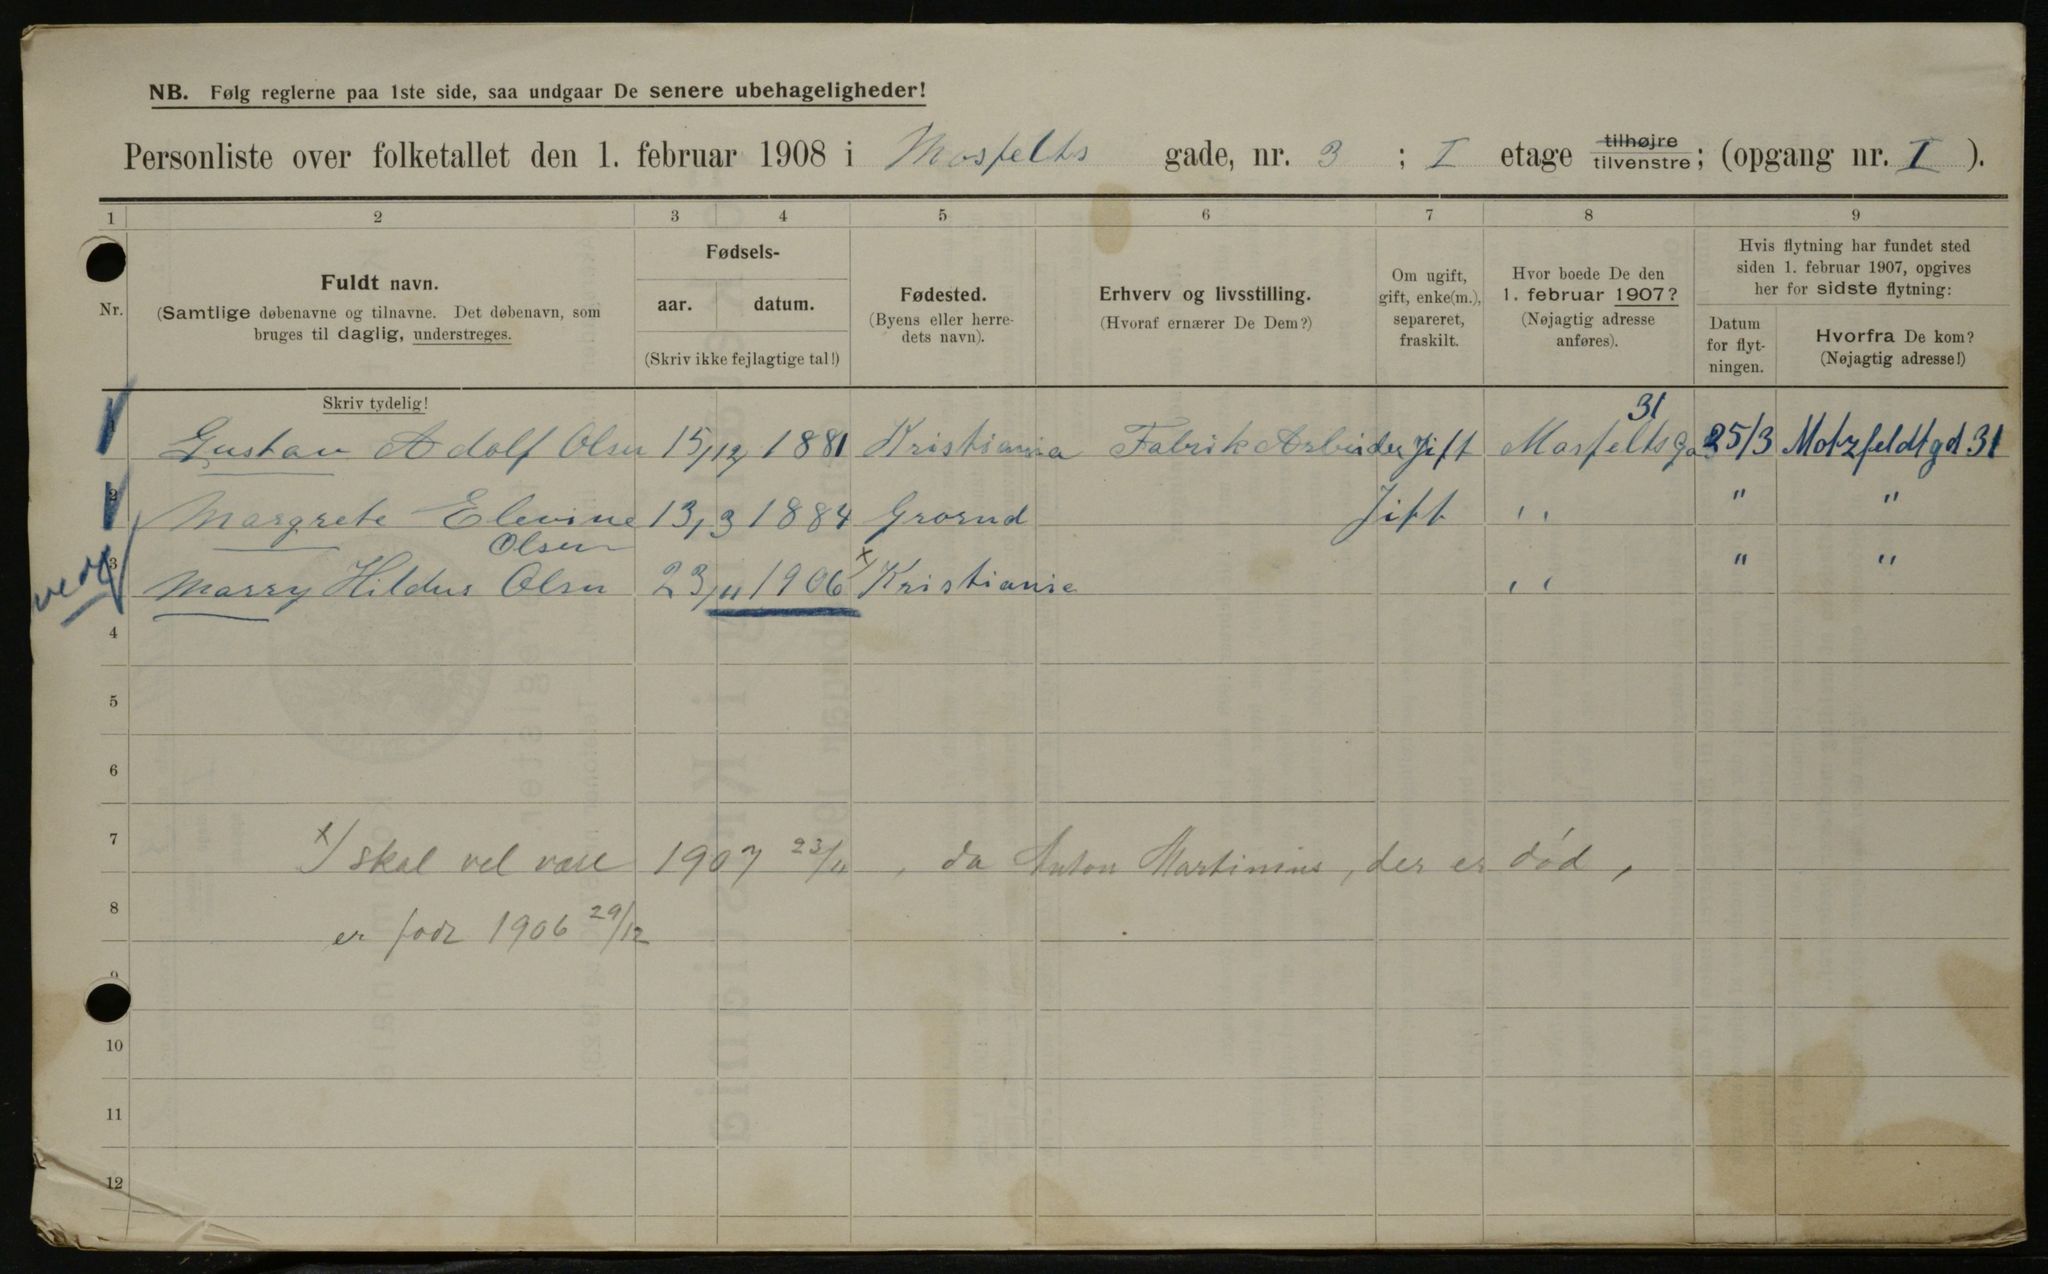 NB. Følg reglerne paa 1ste side, saa undgaar De senere ubehageligheder!
Personliste over folketallet den 1. februar 1908 i Mosfelts gade, nr. 3 ; I etage tilhøjre tilvenstre ; (opgang nr. I ).
1 2 3 4 5 6 7 8 9
Nr.
Fuldt navn.
(Samtlige døbenavne og tilnavne. Det døbenavn, som
bruges til daglig, understreges.
Skriv tydelig!
Fødsels-
aar. datum.
(Skriv ikke fejlagtige tal!)
Fødested.
(Byens eller herre-
dets navn).
Erhverv og livsstilling.
(Hvoraf ernærer De Dem?)
Om ugift,
gift, enke(m.),
separeret,
fraskilt.
Hvor boede De den
1. februar 1907?
(Nøjagtig adresse
anføres).
Hvis flytning har fundet sted
siden 1. februar 1907, opgives
her for sidste flytning:
Datum
for flyt-
ningen.
Hvorfra De kom?
(Nøjagtig adresse!)
31
Gustav Adolf Olsen 15/12 1881 Kristiania Fabrik Arbeider Jift Mosfelts Ga 25/3 Motzfeldtgd 31
2 Margrete Elevine 13/3 1884 Grorud Jift " " "
Olsen
3 Marry Hildur Olsen 23/11 1906 x) Kristiania " " "
4
5
6
7
x) skal vel være 1907 23/11, da Anton Martinius, der er død,
8
er født 1906 29/12
9
10
11
12